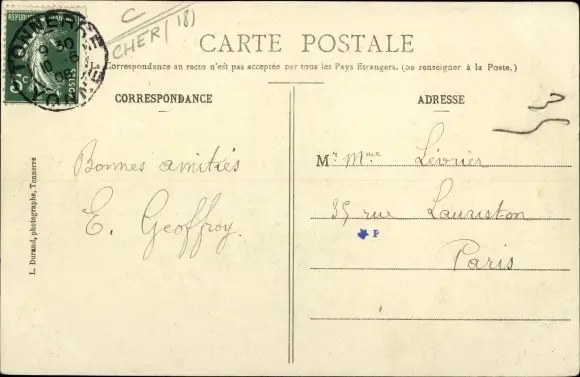 C
CHER (18)
RÉPUBLIQUE
TONNERRE
9 30
10 -6
08
YONNE
5c
POSTES
CARTE POSTALE
La Correspondance au recto n'est pas acceptée par tous les Pays Etrangers. (Se renseigner à la Poste.)
CORRESPONDANCE
Bonnes amitiés
E. Geoffroy.
L. Durand, photographe, Tonnerre
ADRESSE
M r Mme Lévrier
35 rue Lauriston
P
Paris